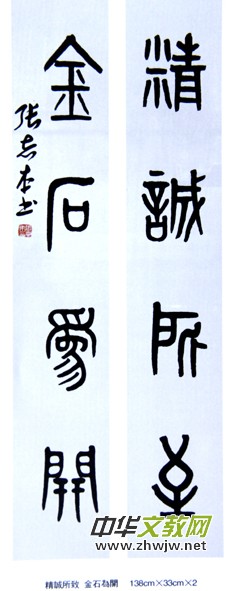 精誠所至
金石為開
张志本书
中华文教网
www.zhwjw.net
精誠所致 金石為開 138cm×33cm×2